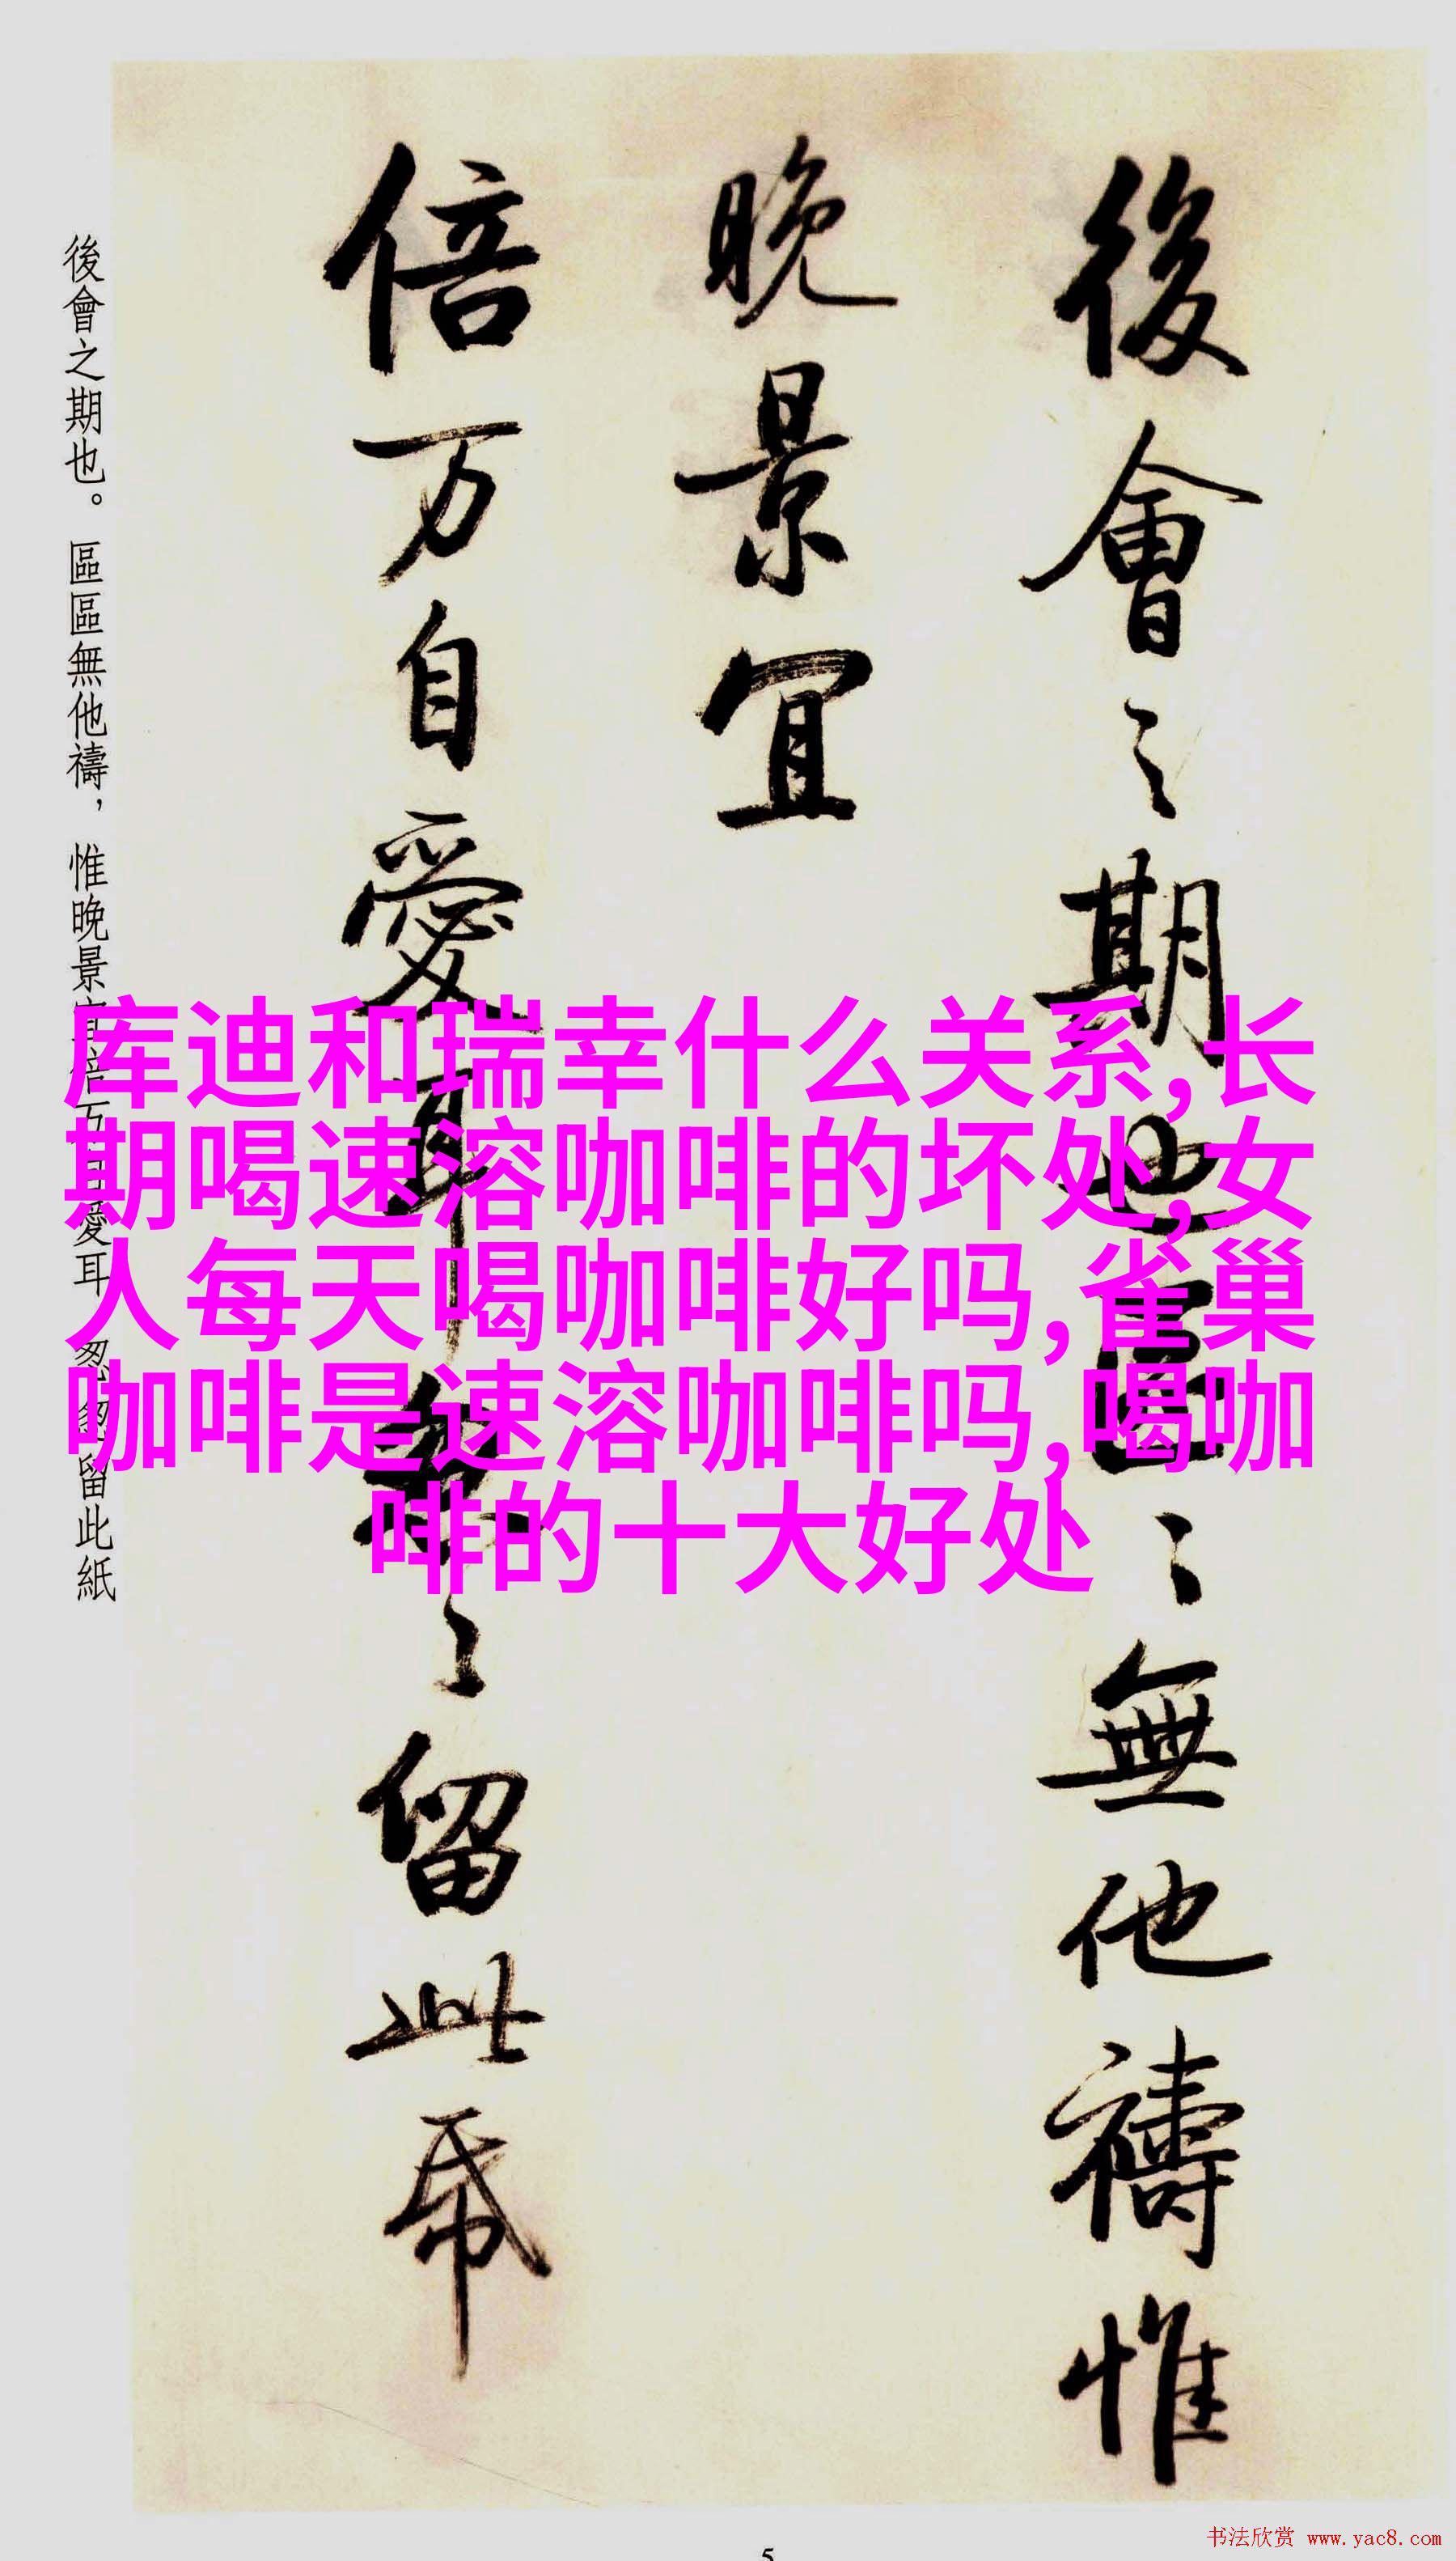 後會之期也。區區無他禱，惟晚景宜倍万自愛耳 怱怱留此紙
後會〻期也區〻無他禱惟
晚景宜
倍万自愛耳怱〻留此帋
库迪和瑞幸什么关系,长
期喝速溶咖啡的坏处,女
人每天喝咖啡好吗,雀巢
咖啡是速溶咖啡吗,喝咖
啡的十大好处
书法欣赏 www.yac8.com
5